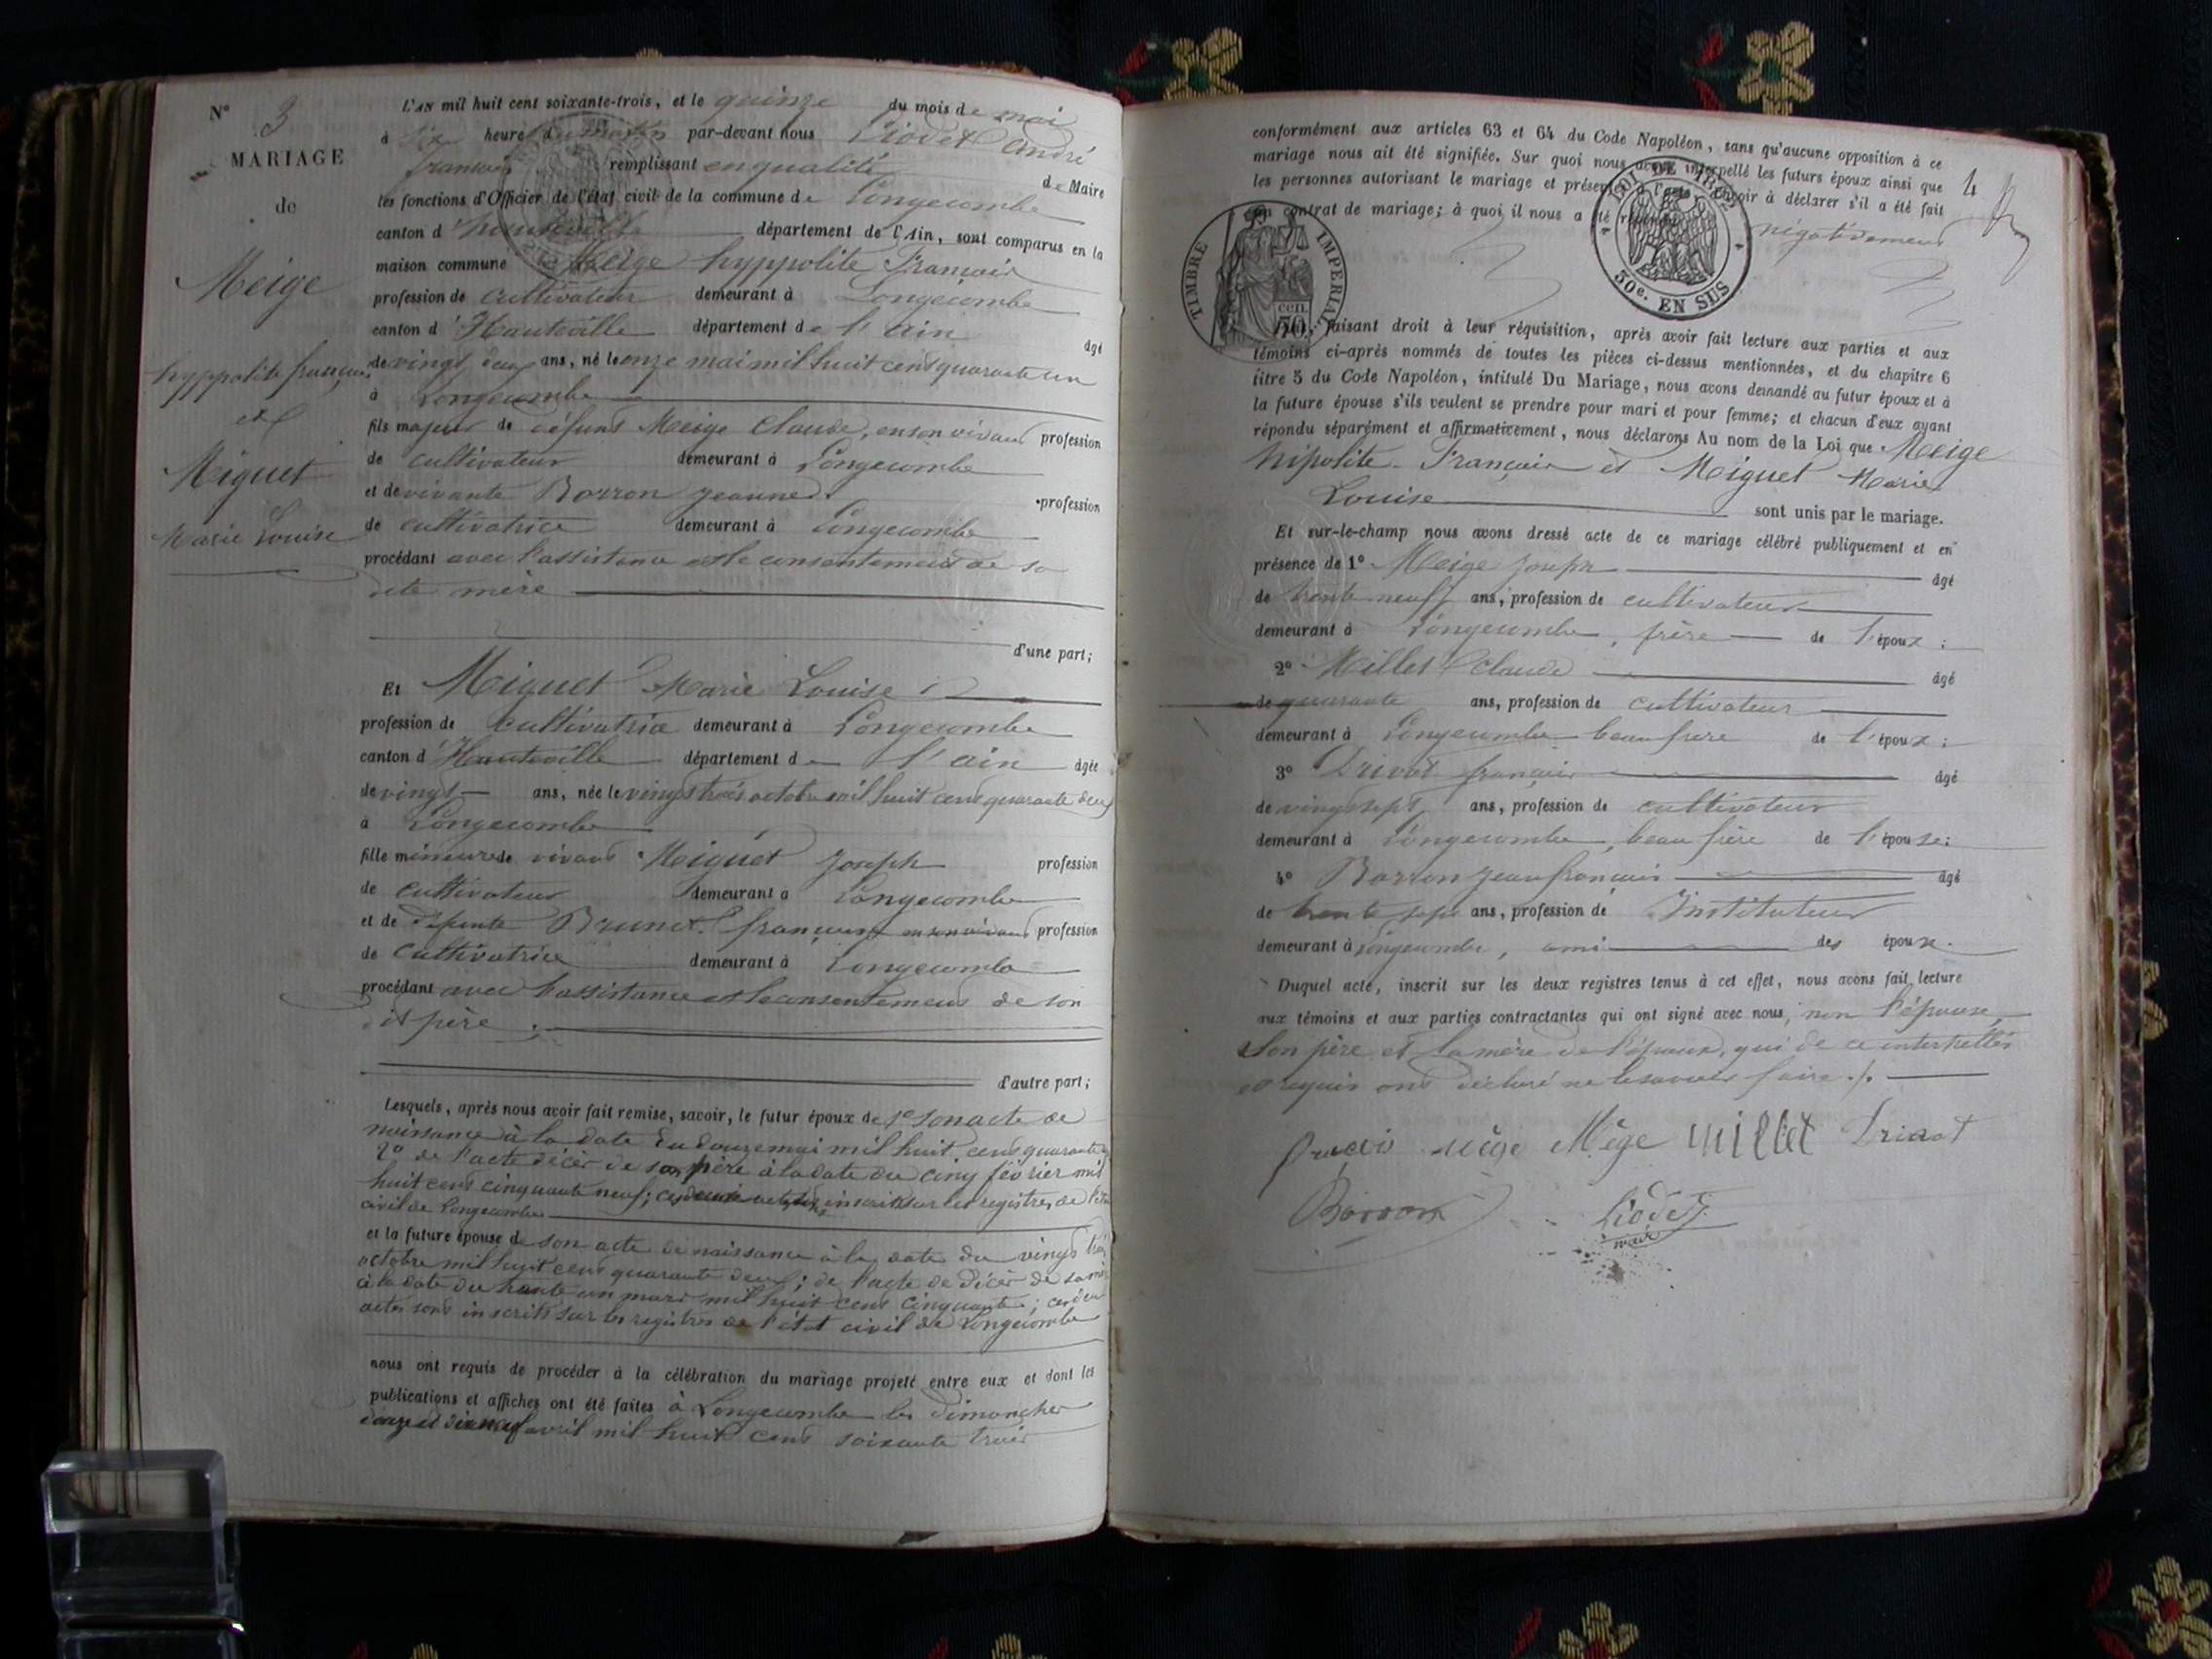 N° 3
MARIAGE
de
Meige
hyppolite françois
et
Miguet
Marie Louise
L'AN mil huit cent soixante-trois, et le quinze du mois de mai
à six heure du matin par-devant nous Liodet André
françois remplissant en qualité de Maire
les fonctions d'Officier de l'état civil de la commune de Longecombe
canton d'hauteville département de l'Ain, sont comparus en la
maison commune Meige hyppolite François
profession de cultivateur demeurant à Longecombe
canton d'Hauteville département de l'ain âgé
de vingt deux ans, né le onze mai mil huit cent quarante un
à Longecombe
fils majeur de défunt Meige Claude, en son vivant profession
de cultivateur demeurant à Longecombe
et de vivante Borron jeanne profession
de cultivatrice demeurant à Longecombe
procédant avec l'assistance et le consentement de sa
dite mère
d'une part;
Et Miguet Marie Louise
profession de cultivatrice demeurant à Longecombe
canton d'Hauteville département de l'ain âgée
de vingt ans, née le vingt trois octobre mil huit cent quarante deux
à Longecombe
fille mineure de vivant Miguet Joseph profession
de cultivateur demeurant à Longecombe
et de défunte Brunet françoise en son vivant profession
de cultivatrice demeurant à Longecombe
procédant avec l'assistance et le consentement de son
dit père
d'autre part;
Lesquels, après nous avoir fait remise, savoir, le futur époux de 1° son acte de
naissance à la date du douze mai mil huit cent quarante
2° de l'acte décès de son père à la date du cinq février mil
huit cent cinquante neuf; inscrits sur les registres de l'état
civil de Longecombe
et la future épouse de son acte de naissance à la date du vingt trois
octobre mil huit cent quarante deux; de l'acte de décès de sa mère
à la date du trente un mars mil huit cent cinquante; ces deux
actes sont inscrits sur les registres de l'état civil de Longecombe
nous ont requis de procéder à la célébration du mariage projeté entre eux et dont les
publications et affiches ont été faites à Longecombe les dimanches
douze et dix neuf avril mil huit cent soixante trois
conformément aux articles 63 et 64 du Code Napoléon, sans qu'aucune opposition à ce
mariage nous ait été signifiée. Sur quoi nous avons interpellé les futurs époux ainsi que
les personnes autorisant le mariage et présentes à l'acte, d'avoir à déclarer s'il a été fait
un contrat de mariage; à quoi il nous a été répondu négativement
4
TIMBRE IMPERIAL
50 cen.
LOI DE 1862
50c. EN SUS
faisant droit à leur réquisition, après avoir fait lecture aux parties et aux
témoins ci-après nommés de toutes les pièces ci-dessus mentionnées, et du chapitre 6
titre 5 du Code Napoléon, intitulé Du Mariage, nous avons demandé au futur époux et à
la future épouse s'ils veulent se prendre pour mari et pour femme; et chacun d'eux ayant
répondu séparément et affirmativement, nous déclarons Au nom de la Loi que Meige
hipolite François et Miguet Marie
Louise sont unis par le mariage.
Et sur-le-champ nous avons dressé acte de ce mariage célébré publiquement et en
présence de 1° Meige Joseph âgé
de trente neuf ans, profession de cultivateur
demeurant à Longecombe, frère de l'époux;
2° Millet Claude âgé
de quarante ans, profession de cultivateur
demeurant à Longecombe beau frère de l'époux;
3° Drivot françois âgé
de vingt sept ans, profession de cultivateur
demeurant à Longecombe, beau frère de l'épouse;
4° Borron Jean françois âgé
de trente sept ans, profession de Instituteur
demeurant à Longecombe, ami des époux.
Duquel acte, inscrit sur les deux registres tenus à cet effet, nous avons fait lecture
aux témoins et aux parties contractantes qui ont signé avec nous, non l'épouse,
son père et la mère de l'époux, qui de ce interpellés
et requis ont déclaré ne le savoir faire.
mège Mège millet Drivot
Borron Liodet
maire